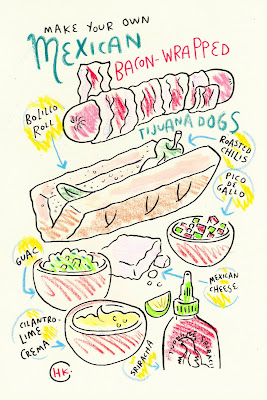 MAKE YOUR OWN
MEXICAN
BACON-WRAPPED
TIJUANA DOGS
BOLILLO
ROLL
ROASTED
CHILIS
PICO
DE
GALLO
GUAC
MEXICAN
CHEESE
CILANTRO-
LIME
CREMA
SRIRACHA
HK.